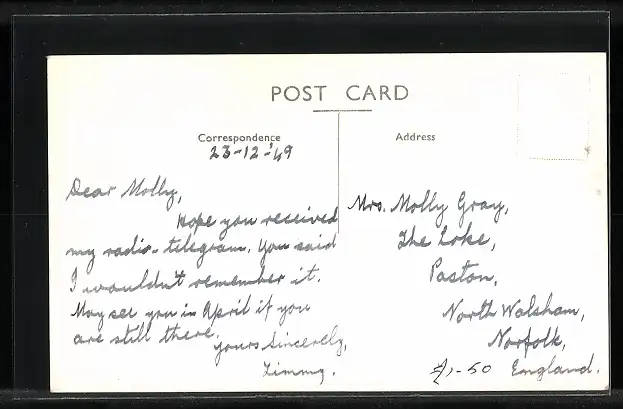 POST CARD
Correspondence
Address
23-12-'49
Dear Molly,
Hope you received
my radio-telegram. You said
I wouldn't remember it.
May see you in April if you
are still there.
Yours Sincerely,
Jimmy.
Mrs. Molly Gray,
The Loke,
Paston,
North Walsham,
Norfolk,
England.
£1-50